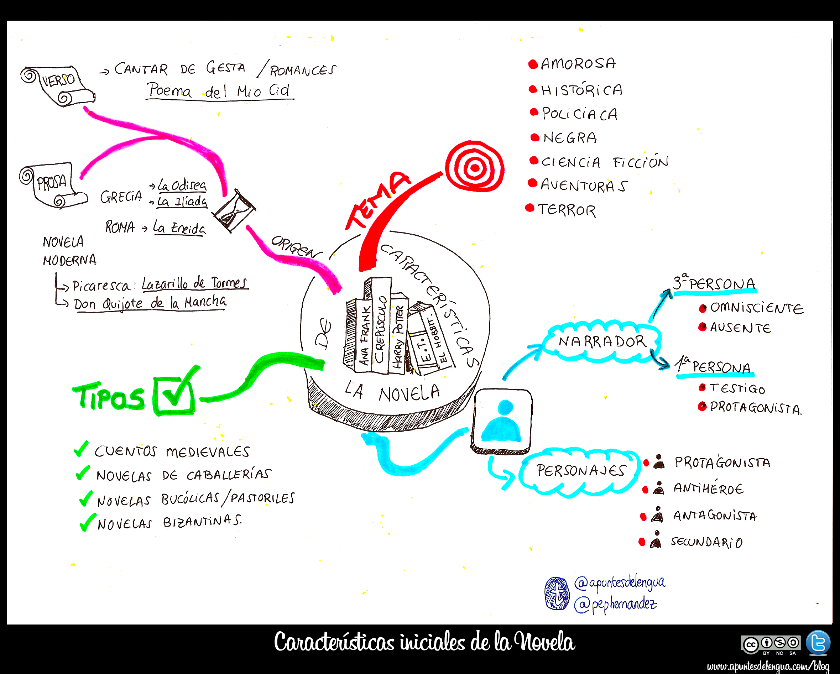 VERSO
→ CANTAR DE GESTA / ROMANCES
Poema del Mio Cid
PROSA
GRECIA → La Odisea
→ La Iliada
ROMA → La Eneida
NOVELA
MODERNA
→ Picaresca: Lazarillo de Tormes
→ Don Quijote de la Mancha
ORIGEN
TEMA
AMOROSA
HISTÓRICA
POLICÍACA
NEGRA
CIENCIA FICCIÓN
AVENTURAS
TERROR
CARACTERÍSTICAS
DE
LA NOVELA
ANA FRANK
CREPÚSCULO
HARRY POTTER
E.T.
EL HOBBIT
TIPOS
CUENTOS MEDIEVALES
NOVELAS DE CABALLERÍAS
NOVELAS BUCÓLICAS/PASTORILES
NOVELAS BIZANTINAS.
NARRADOR
3ª PERSONA
OMNISCIENTE
AUSENTE
1ª PERSONA
TESTIGO
PROTAGONISTA.
PERSONAJES
PROTAGONISTA
ANTIHÉROE
ANTAGONISTA
SECUNDARIO
@apuntesdelengua
@pephernandez
Características iniciales de la Novela
CC BY NC SA
www.apuntesdelengua.com/blog